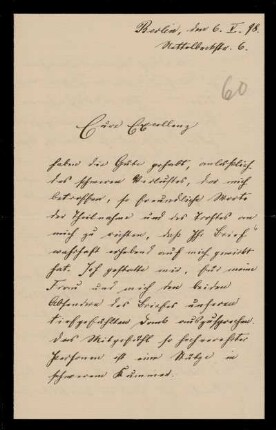 Berlin, den 6. V. 98.
Nettelbeckstr. 6.
60
Eure Exzellenz
haben die Güte gehabt, anläßlich
des schweren Verlustes, der mich
betroffen, so freundliche Worte
der Theilnahme und des Trostes an
mich zu richten, daß Ihr Brief
wahrhaft erhebend auf mich gewirkt
hat. Ich gestatte mir, für meine
Frau und mich den beiden
Absendern des Briefes unseren
tiefgefühlten Dank auszusprechen.
Das Mitgefühl so hochverehrter
Personen ist eine Stütze in
schwerem Kummer.